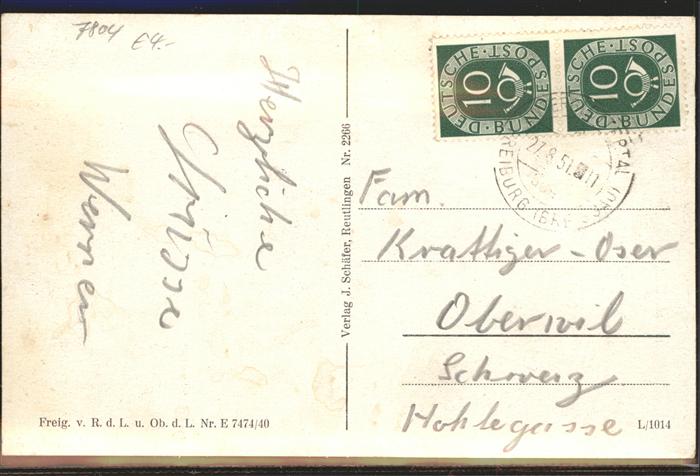 7804
€4.-
Herzliche
Grüsse
Werner
Verlag J. Schäfer, Reutlingen Nr. 2266
DEUTSCHE · POST · BUNDES
10
DEUTSCHE · POST · BUNDES
10
27.8.51
FREIBURG (BRSG)
Fam.
Krattiger - Oser
Oberwil
Schweiz
Hohlegasse
Freig. v. R. d. L. u. Ob. d. L. Nr. E 7474/40
L/1014